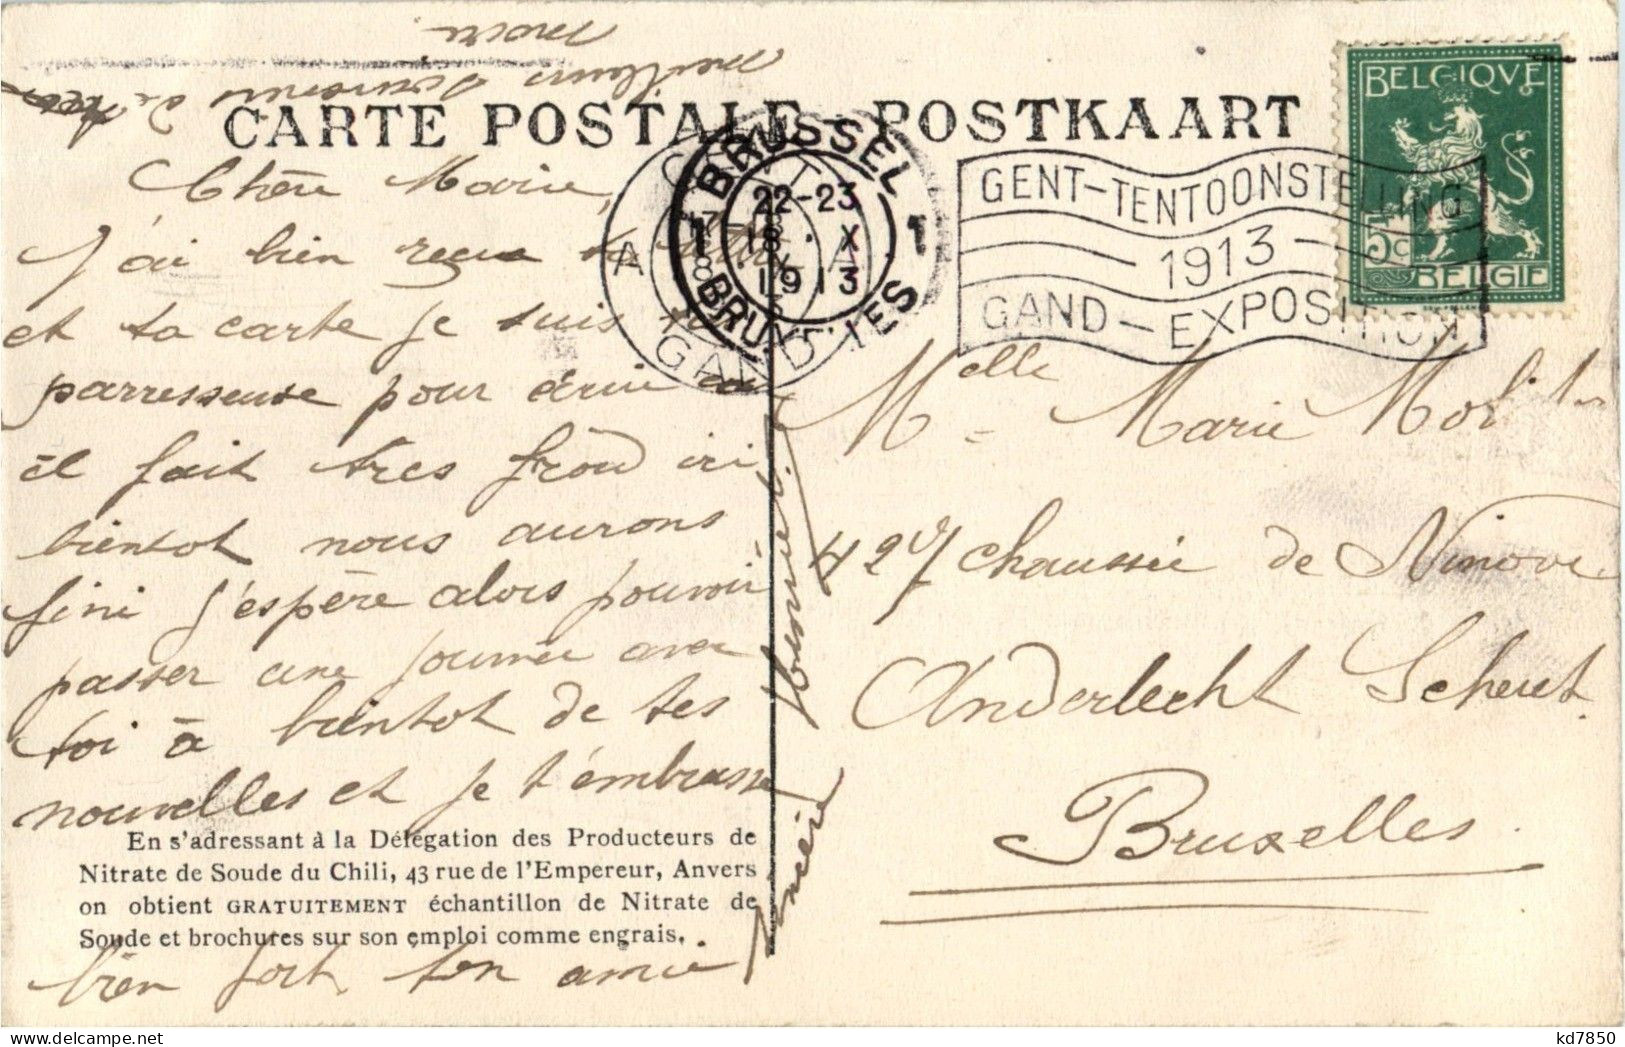 meilleurs souvenirs de
CARTE POSTALE POSTKAART
BELGIQVE
5c 5c
BELGIE
GENT-TENTOONSTELLING
1913
GAND-EXPOSITION
BRUSSEL
22-23
1 18 X 1
1913
BRUXELLES
GAND
Chère Marie,
J'ai bien reçue ta lettre
et ta carte je suis
parresseuse pour écrire car
il fait tres froid ici
bientot nous aurons
fini j'espère alors pouvoir
passer une journée avec
toi à bientot de tes
nouvelles et je t'embrasse
bien fort ton amie
sincère
En s'adressant à la Délégation des Producteurs de
Nitrate de Soude du Chili, 43 rue de l'Empereur, Anvers
on obtient GRATUITEMENT échantillon de Nitrate de
Soude et brochures sur son emploi comme engrais.
Melle Marie Molitor
427 chaussée de Ninove
Anderlecht Scheut.
Bruxelles.
kd7850